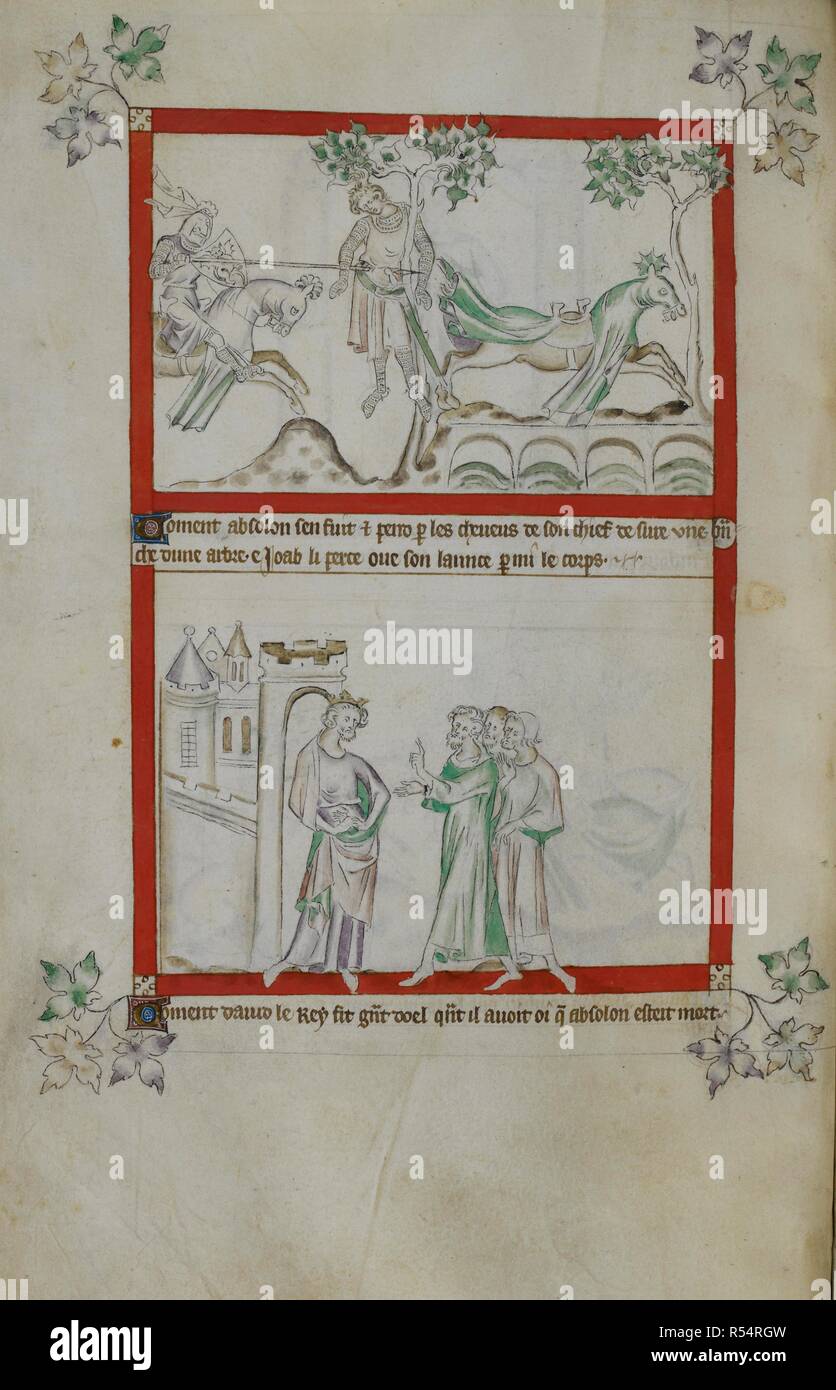 Coment absolon sen fuit ⁊ per les cheveus de son chief de sure une
che dune arbre · e Joab li perce oue son launce le corps ·
Coment dauid le Rey fit gnt doel qnt il auoit oi q absolon esteit mort
alamy
Image ID: R54RGW
www.alamy.com